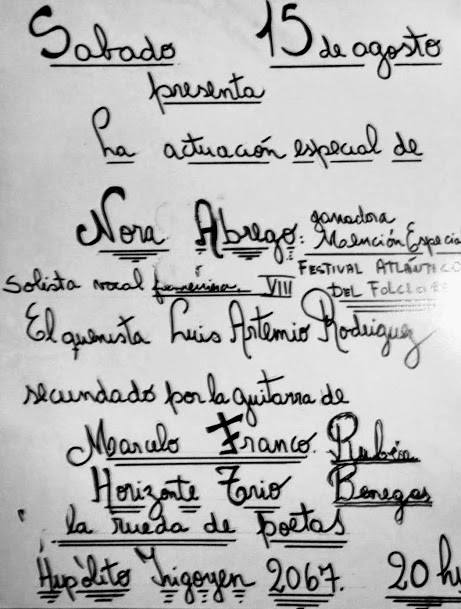 Sabado 15 de agosto
presenta
La actuación especial de
Nora Abrego: ganadora
Mención Especia
Solista vocal femenina VIII FESTIVAL ATLÁNTICO
DEL FOLCLORE
El quenista Luis Artemio Rodriguez
secundado por la guitarra de
Marcelo Franco. Rubén
Horizonte Trio Benegas
la rueda de poetas
Hipólito Irigoyen 2067. 20 h